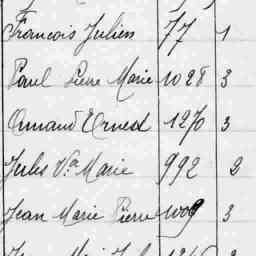 Francois Julien 77 1
Paul Pierre Marie 1028 3
Armand Ernest 1270 3
Jules Vor Marie 992 2
Jean Marie Pierre 1009 3
Jean Marie